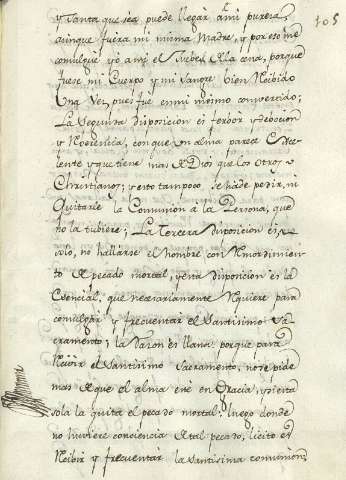 105
y santa que sea, puede llegar à mi pureza,
aunque fuera mi misma Madre, y por eso me
comulgue yo a mi el Jueves de la cena, porque
fuese mi Cuerpo y mi sangre bien Recibido
Una Vez, pues fue en mi mismo convertido;
La Segunda disposicion es fervor y debocion
y Reverencia, con que un alma parece Exce
lente y que tiene mas de Dios que los otros
Christianos; y esto tampoco se ha de pedir, ni
Quitarle la Comunion a la Persona, que
no la tubiere; La Tercera disposicion es
no hallarse el hombre con Remordimien
to de pecado mortal, y esta disposicion es la
Esencial, que necesariamente Requiere para
comulgar y frecuentar el Santisimo Sa
cramento; la Razon es llana: porque para
Recivir el Santisimo Sacramento, no se pide
mas de que el alma esté en Gracia, y esta
sola la quita el pecado mortal; luego donde
no huviere conciencia de tal pecado, licito es
Recibir y frecuentar la santissima comunion,